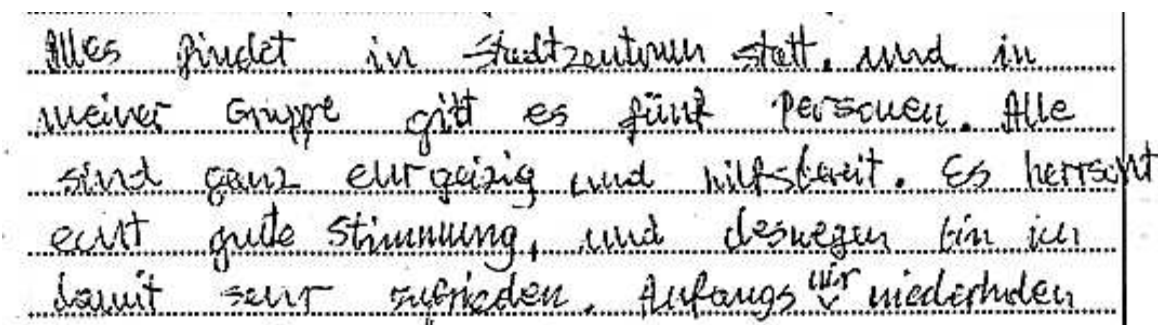 Alles findet in Stadtzentrum statt. und in
meiner Gruppe gitt es fünf Personen. Alle
sind ganz ehrgeizig und hilfsbereit. Es herrscht
echt gute Stimmung, und deswegen bin ich
damit sehr zufrieden. Anfangs wir niederholen